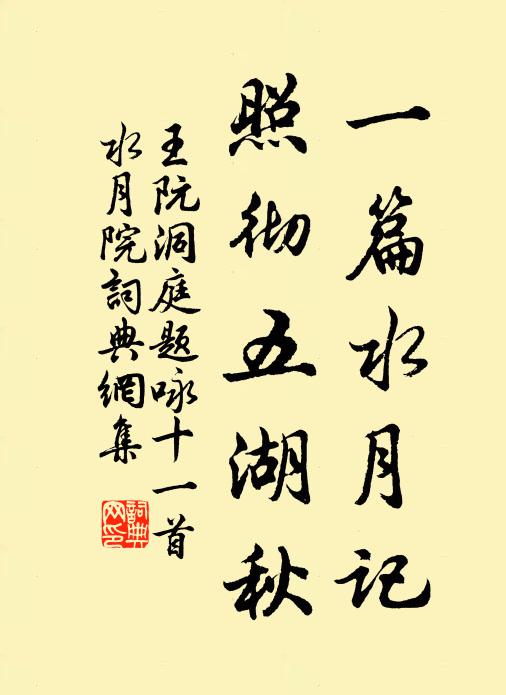 一篇水月记
照彻五湖秋
王阮洞庭题咏十一首
水月院詞典網集
詞典
网印